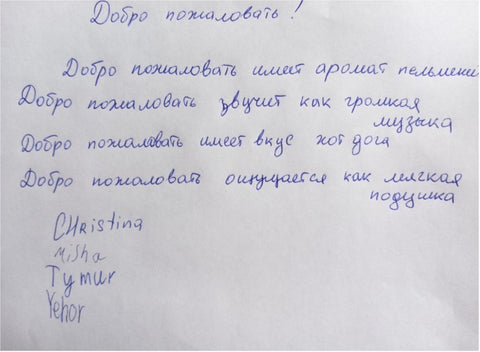 Добро пожаловать!
Добро пожаловать имеет аромат пельменей
Добро пожаловать звучит как громкая
музыка
Добро пожаловать имеет вкус хот дога
Добро пожаловать ощущается как мягкая
подушка
CHristina
Misha
Tymur
Yehor